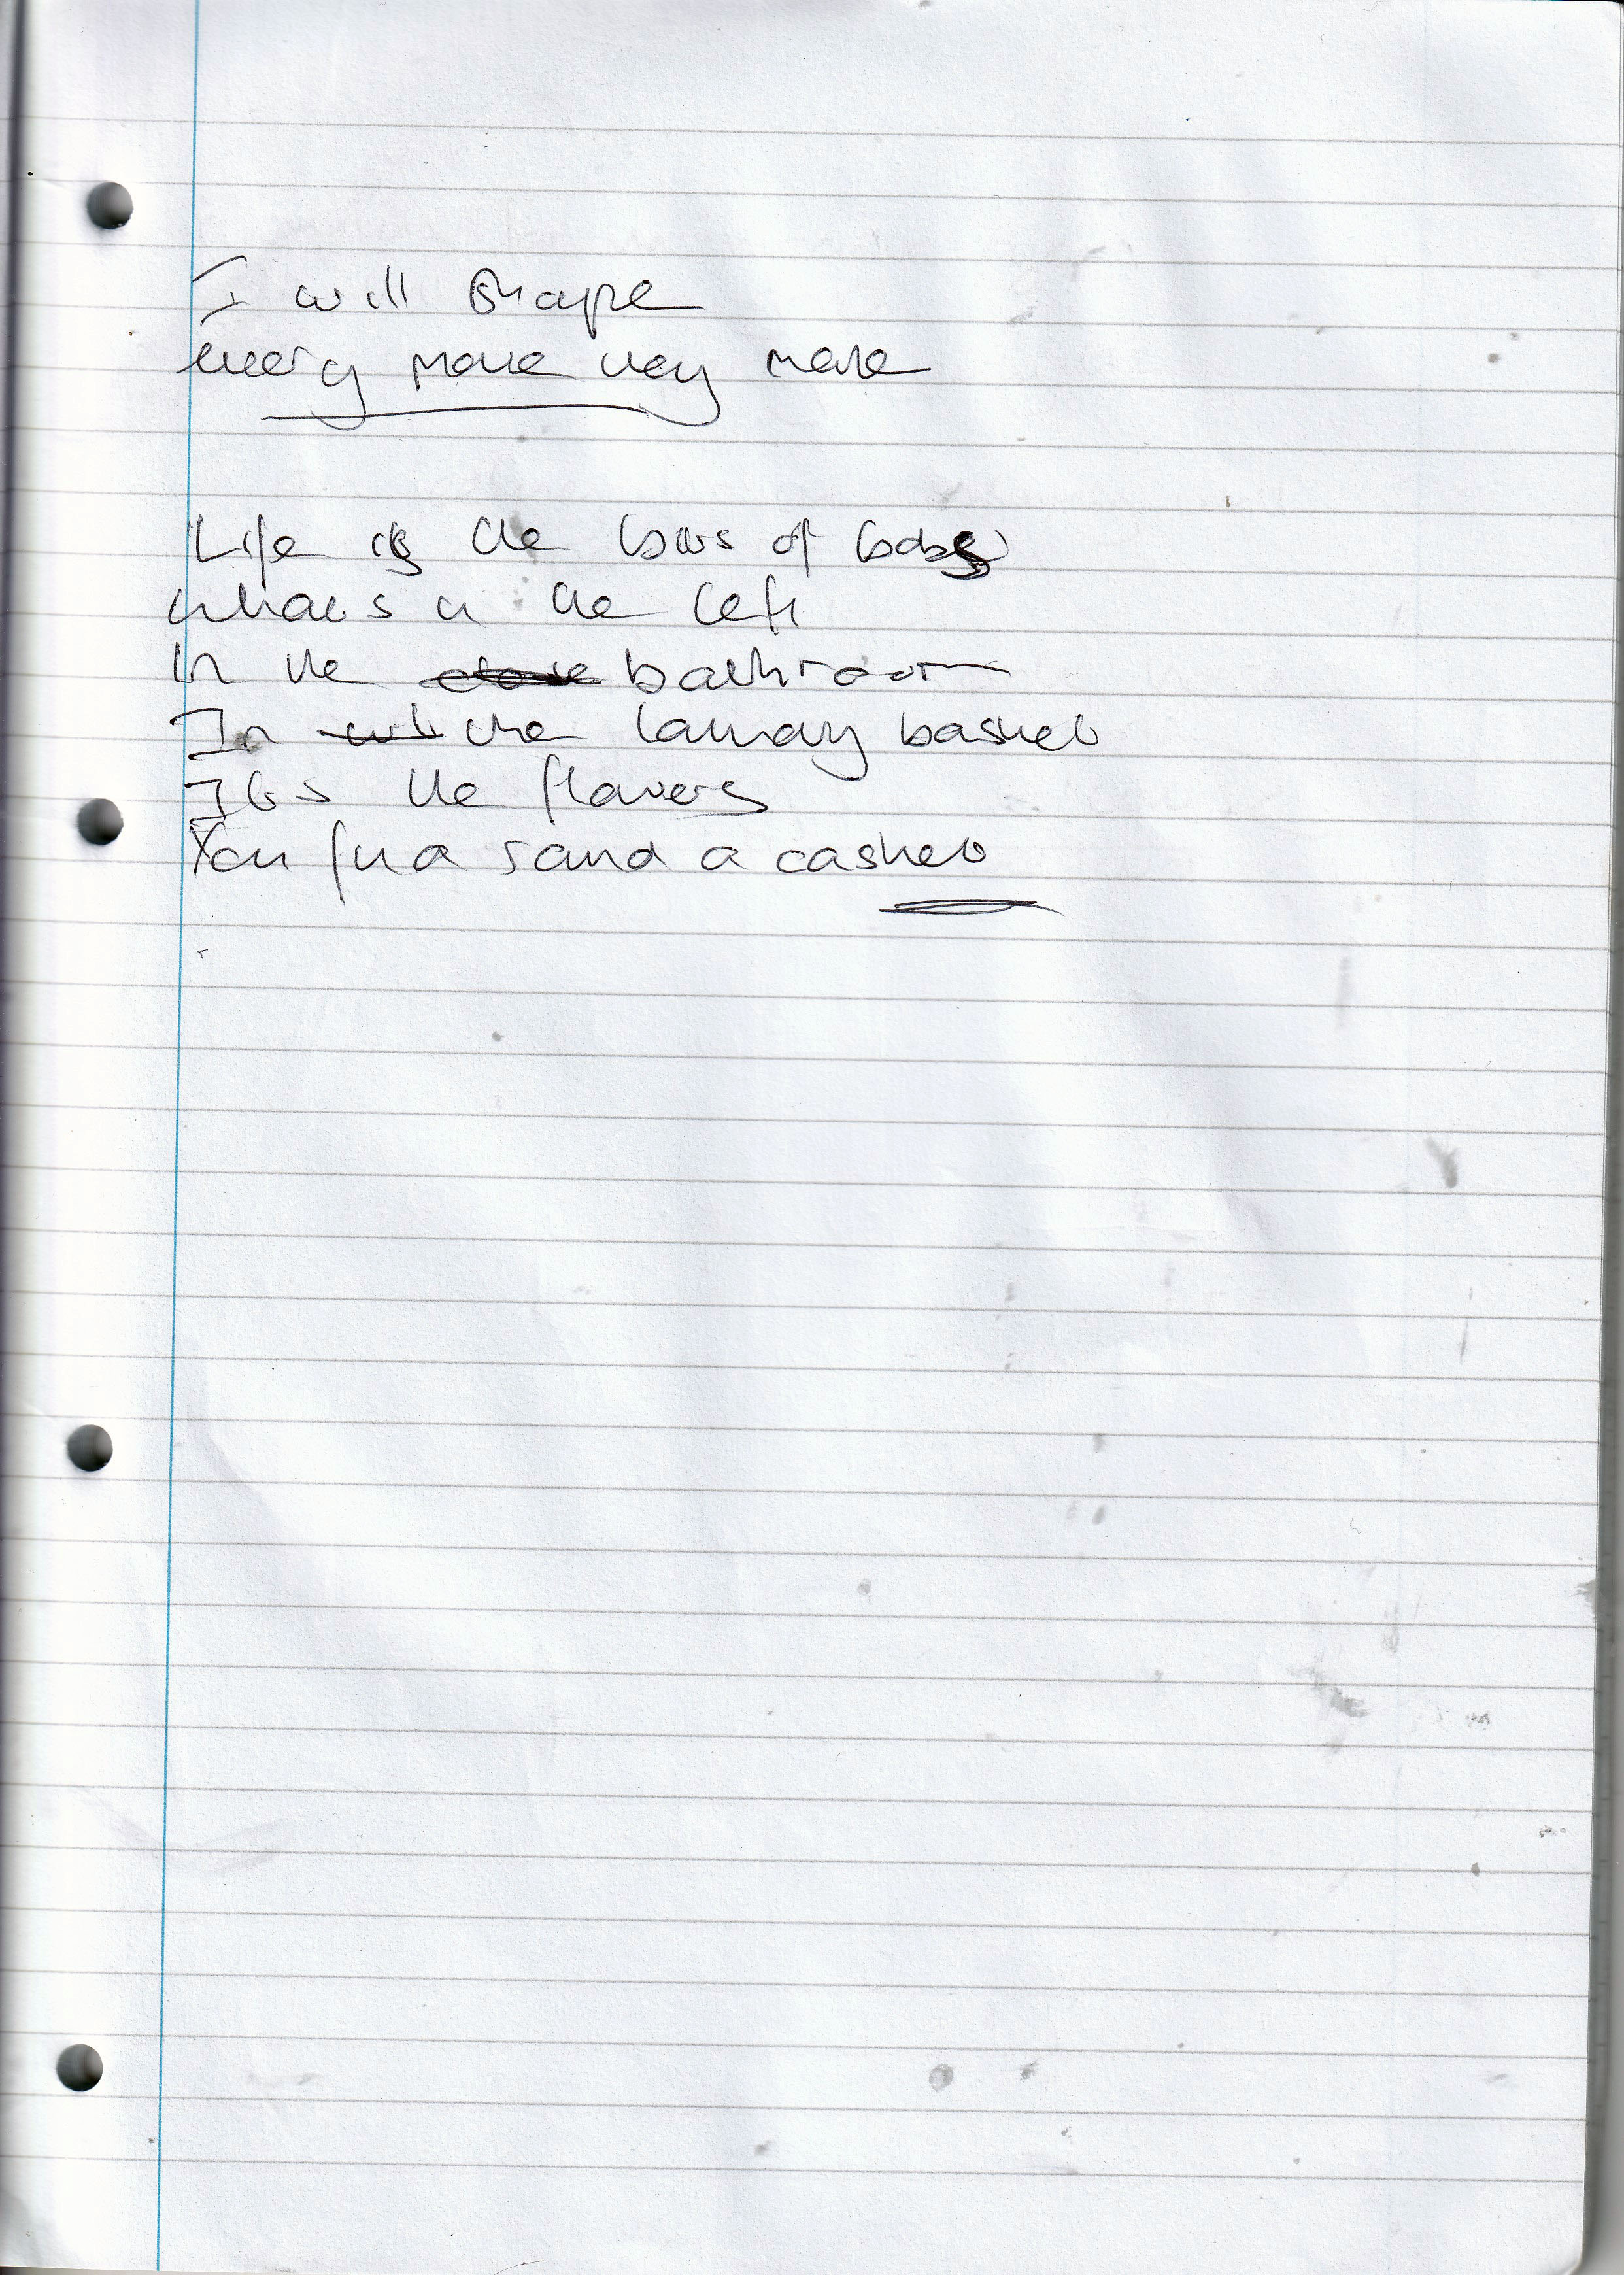 I will shape
every move they move
Life is the bits of bobs
what's in the left
In the bathroom
In the laundry basket
It's the flowers
You find round a casket